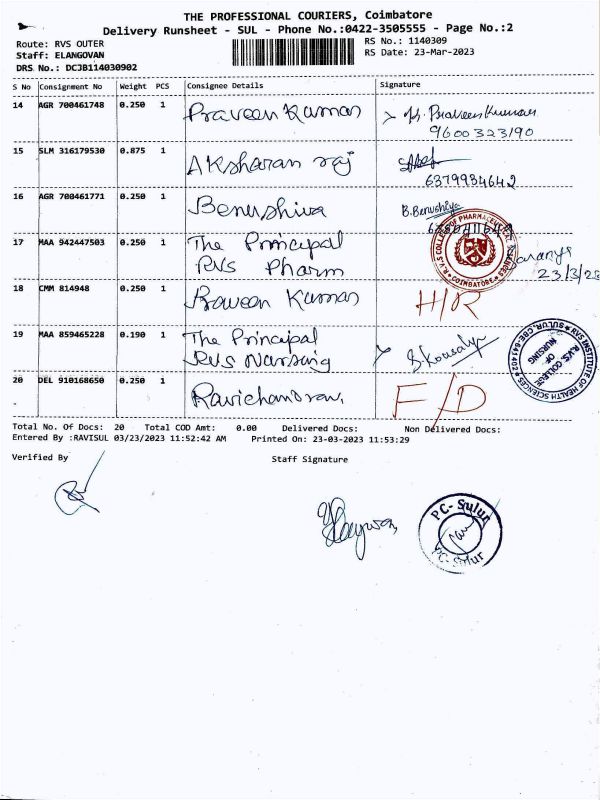 THE PROFESSIONAL COURIERS, Coimbatore
Delivery Runsheet - SUL - Phone No.:0422-3505555 - Page No.:2
Route: RVS OUTER RS No.: 1140309
Staff: ELANGOVAN RS Date: 23-Mar-2023
DRS No.: DCJB114030902
S No Consignment No Weight PCS Consignee Details Signature
14 AGR 700461748 0.250 1 Praveen Kumar Praveen Kumar
9600323190
15 SLM 316179530 0.875 1 Aksharan raj
6379934642
16 AGR 700461771 0.250 1 Benushiva B.Benushiya
17 MAA 942447503 0.250 1 The Principal
RVS Pharm
23/3/23
R.V.S COLLEGE OF PHARMACEUTICAL SCIENCES
COIMBATORE
18 CMM 814948 0.250 1 Praveen Kumar H/R
19 MAA 859465228 0.190 1 The Principal
RVS Nursing
RVS INSTITUTE OF HEALTH SCIENCES
SULUR, CBE-641402
R.V.S. COLLEGE
OF
NURSING
20 DEL 910168650 0.250 1 Ravichandran, F/D
Total No. Of Docs: 20 Total COD Amt: 0.00 Delivered Docs: Non Delivered Docs:
Entered By :RAVISUL 03/23/2023 11:52:42 AM Printed On: 23-03-2023 11:53:29
Verified By Staff Signature
PC- Sulur
PC- Sulur